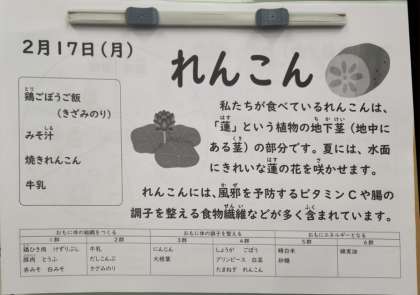 2月17日(月)
れんこん
鶏ごぼうご飯
(きざみのり)
みそ汁
焼きれんこん
牛乳
私たちが食べているれんこんは、
「蓮」という植物の地下茎(地中に
ある茎)の部分です。夏には、水面
にきれいな蓮の花を咲かせます。
れんこんには、風邪を予防するビタミンCや腸の
調子を整える食物繊維などが多く含まれています。
おもに体の組織をつくる おもに体の調子を整える おもにエネルギーとなる
1群 2群 3群 4群 5群 6群
鶏ひき肉 けずりぶし 牛乳 にんじん しょうが ごぼう 精白米 綿実油
豚肉 とうふ だしこんぶ 大根葉 グリンピース 白菜 砂糖
赤みそ 白みそ きざみのり たまねぎ れんこん